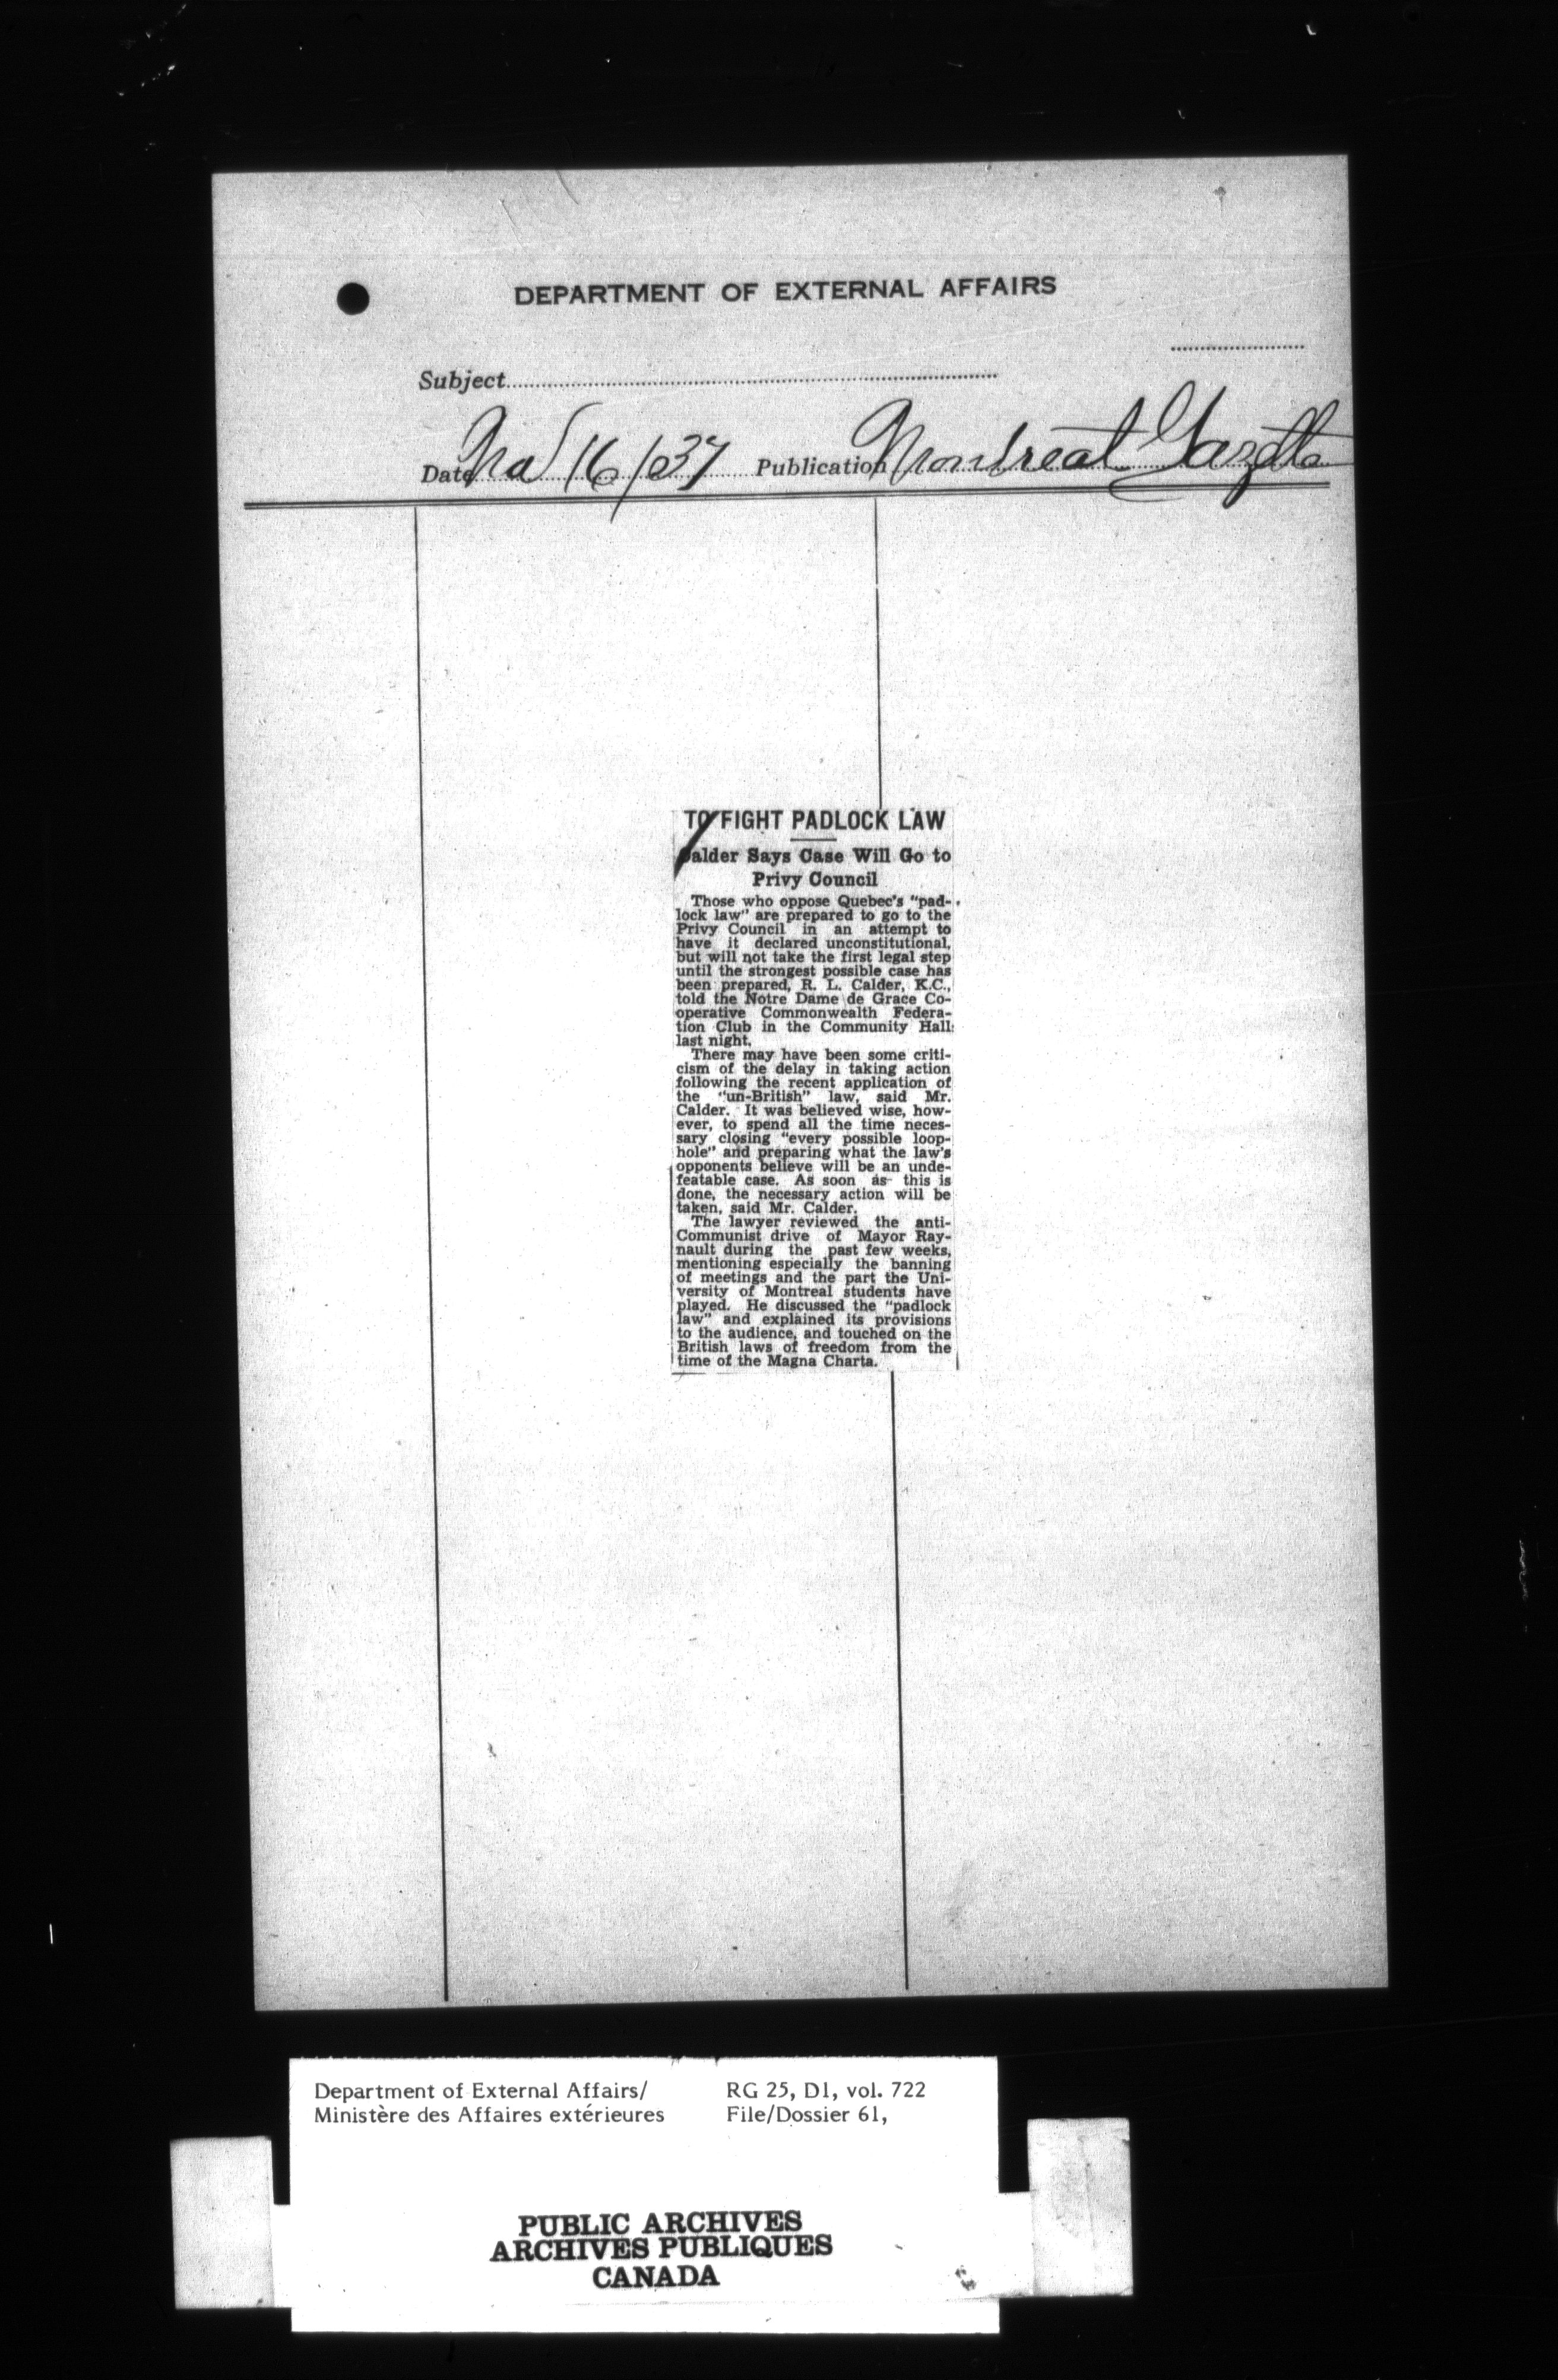 DEPARTMENT OF EXTERNAL AFFAIRS
Subject
Date Nov 16/37 Publication Montreal Gazette
TO FIGHT PADLOCK LAW
Calder Says Case Will Go to
Privy Council
Those who oppose Quebec's "pad-
lock law" are prepared to go to the
Privy Council in an attempt to
have it declared unconstitutional,
but will not take the first legal step
until the strongest possible case has
been prepared, R. L. Calder, K.C.,
told the Notre Dame de Grace Co-
operative Commonwealth Federa-
tion Club in the Community Hall
last night.
There may have been some criti-
cism of the delay in taking action
following the recent application of
the "un-British" law, said Mr.
Calder. It was believed wise, how-
ever, to spend all the time neces-
sary closing "every possible loop-
hole" and preparing what the law's
opponents believe will be an unde-
featable case. As soon as this is
done, the necessary action will be
taken, said Mr. Calder.
The lawyer reviewed the anti-
Communist drive of Mayor Ray-
nault during the past few weeks,
mentioning especially the banning
of meetings and the part the Uni-
versity of Montreal students have
played. He discussed the "padlock
law" and explained its provisions
to the audience, and touched on the
British laws of freedom from the
time of the Magna Charta.
Department of External Affairs/
Ministère des Affaires extérieures
RG 25, D1, vol. 722
File/Dossier 61,
PUBLIC ARCHIVES
ARCHIVES PUBLIQUES
CANADA